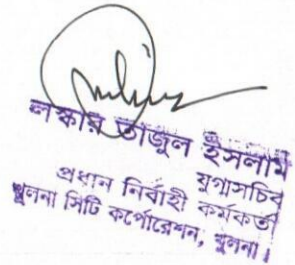 লস্কার তাজুল ইসলাম
যুগ্মসচিব
প্রধান নির্বাহী কর্মকর্তা
খুলনা সিটি কর্পোরেশন, খুলনা।